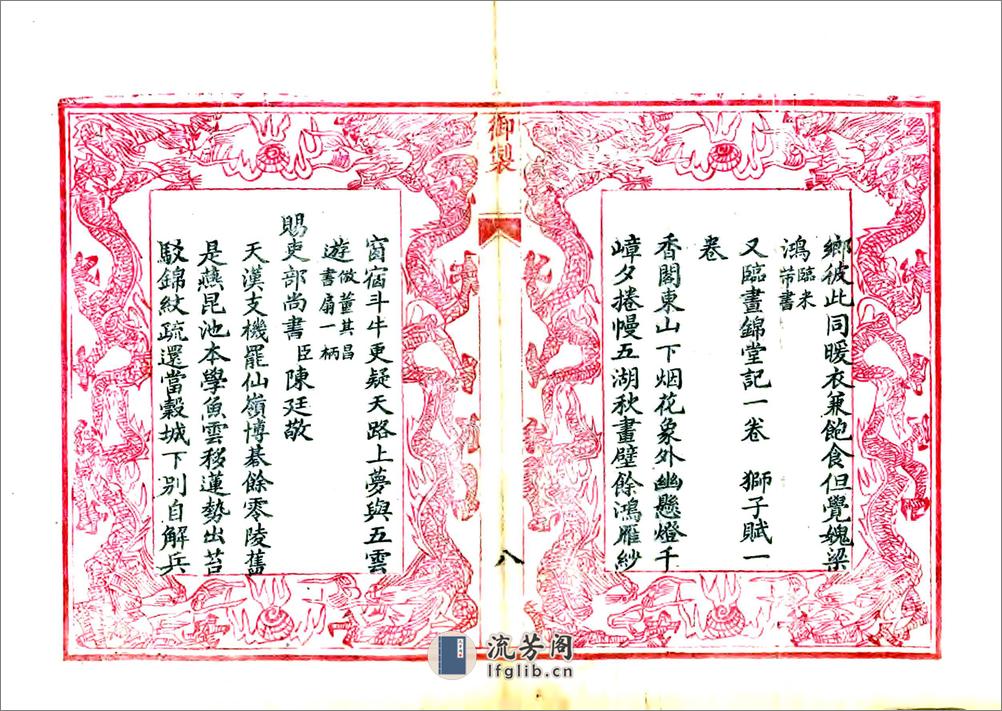 鄉彼此同暖衣兼飽食但覺媿梁
鴻臨米芾書
又臨晝錦堂記一卷 獅子賦一
卷
香閣東山下烟花象外幽懸燈千
嶂夕捲幔五湖秋畫壁餘鴻雁紗
御製
八
窗宿斗牛更疑天路上夢與五雲
遊倣董其昌書扇一柄
賜吏部尚書臣陳廷敬
天漢支機罷仙嶺博棊餘零陵舊
是燕昆池本學魚雲移蓮勢出苔
駁錦紋疏還當穀城下別自解兵
流芳阁
lfglib.cn